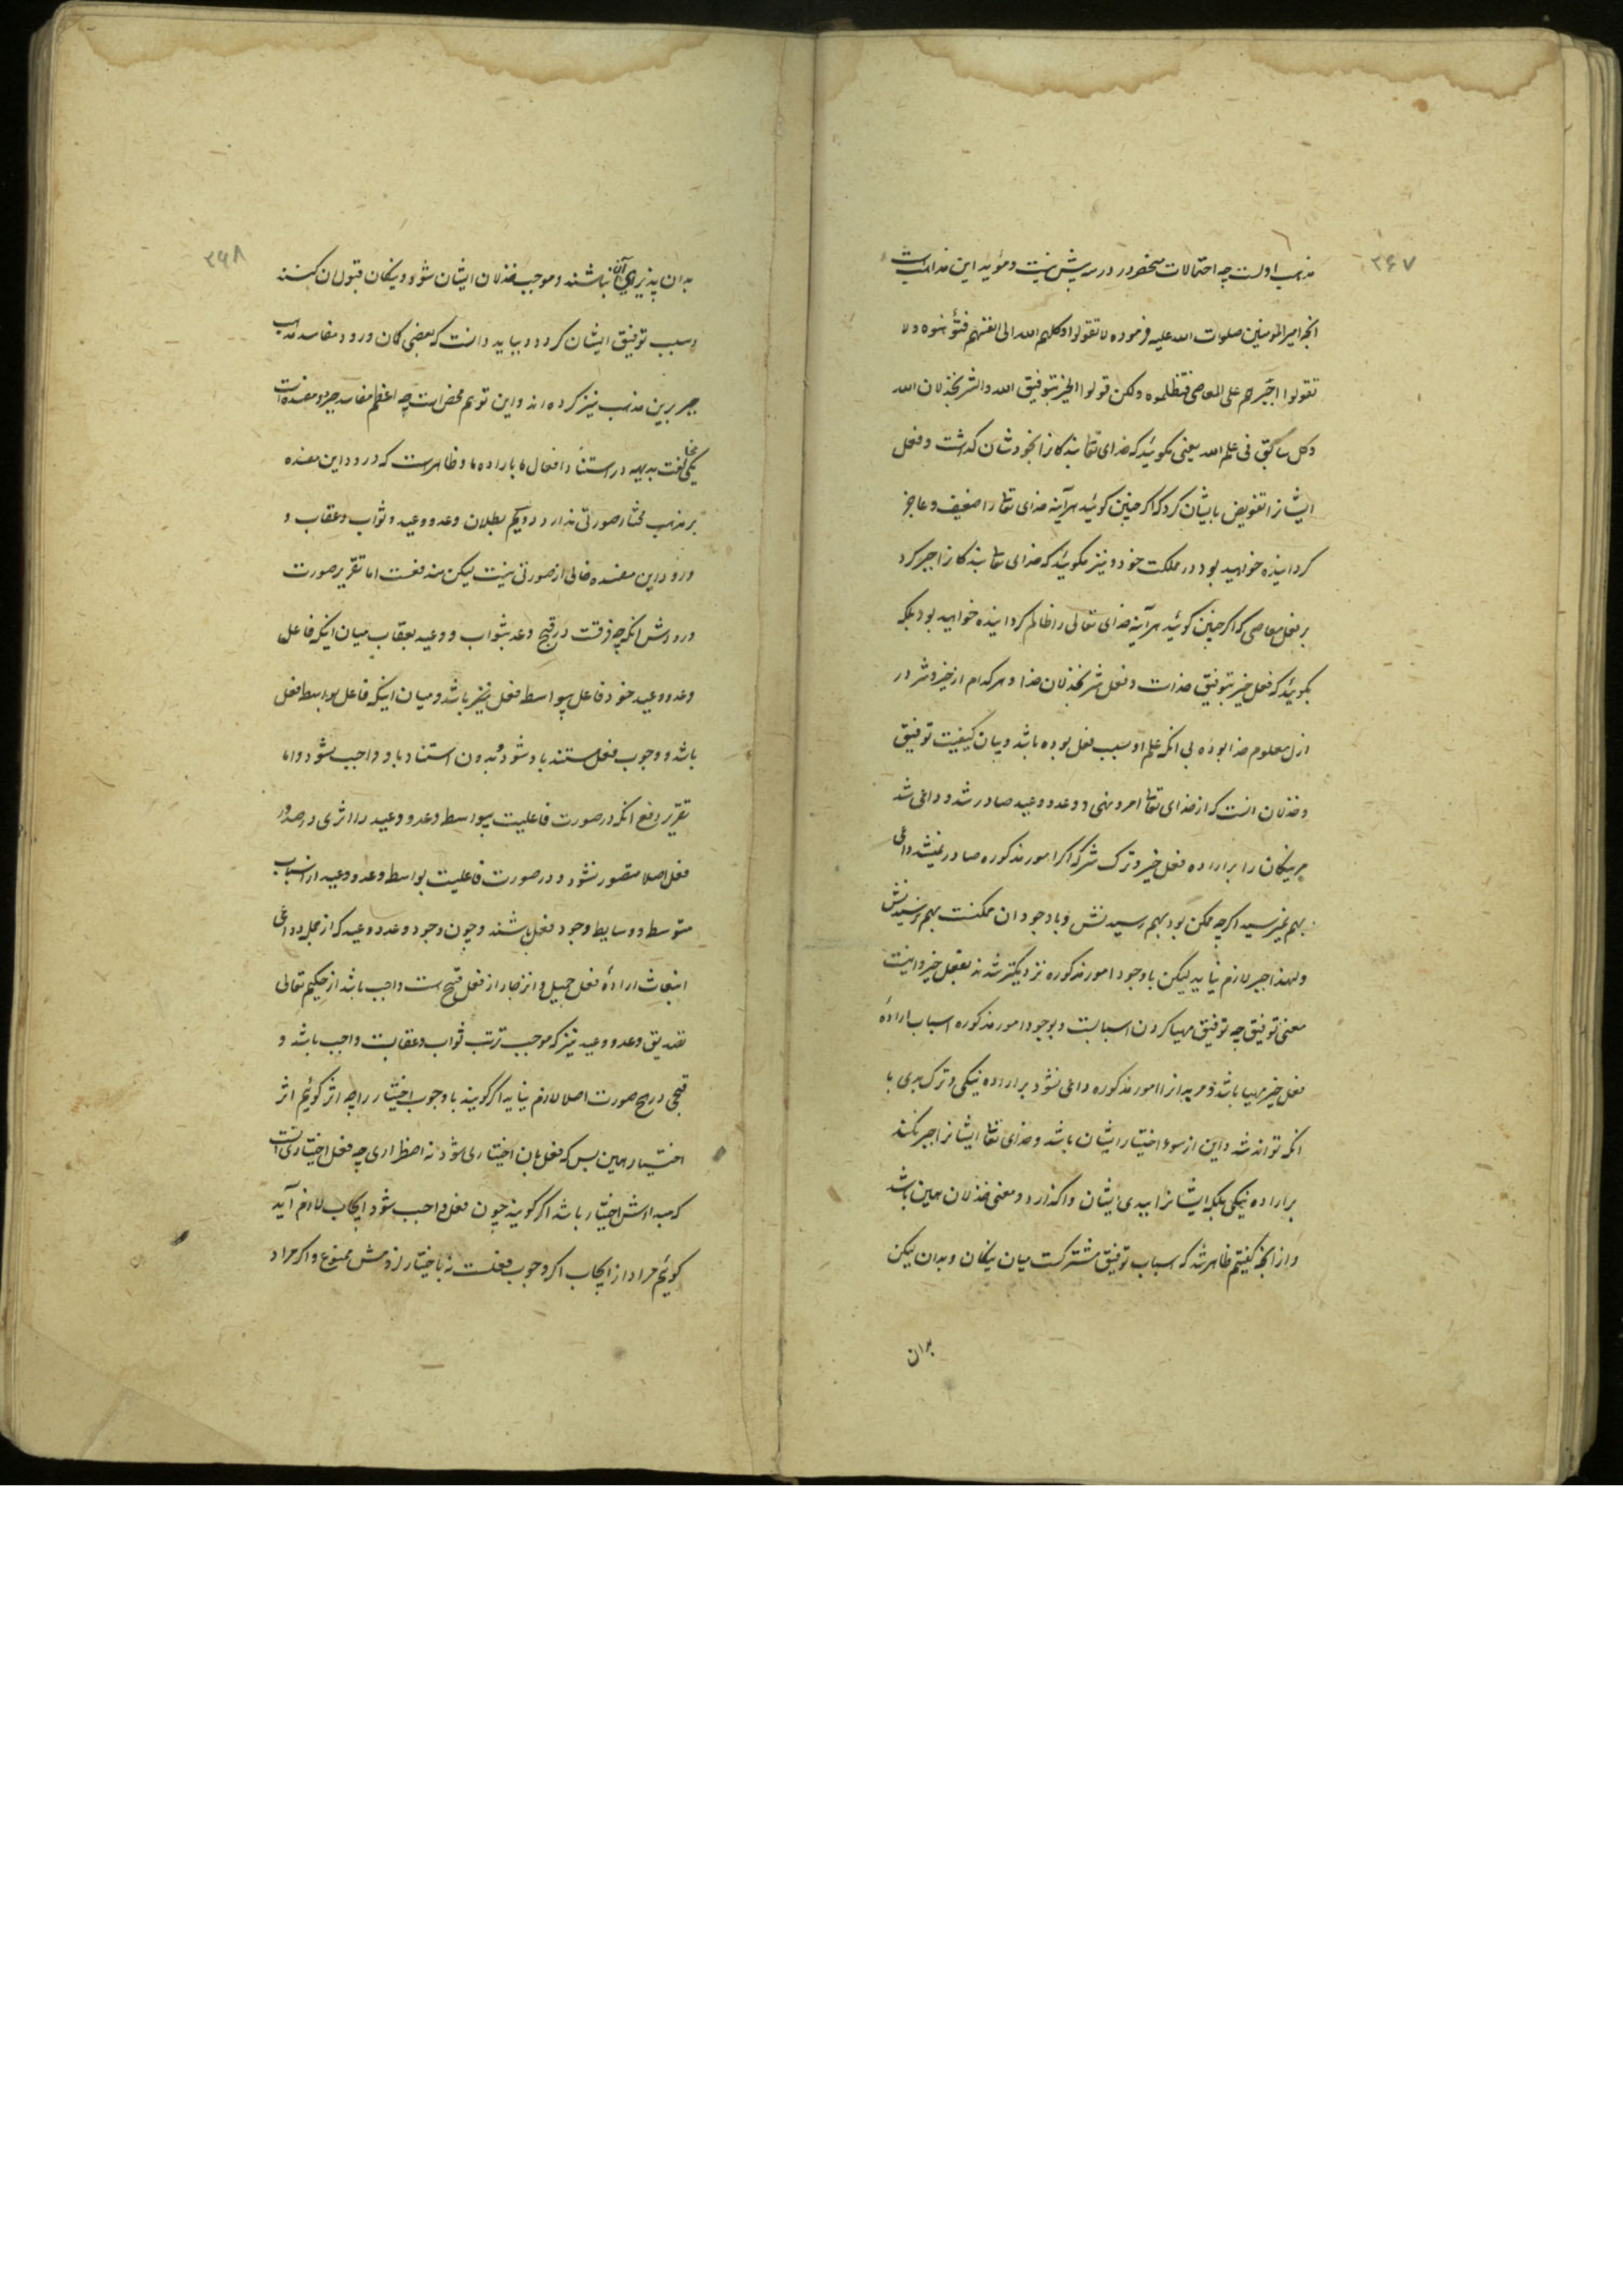 ۳۶۷
مذهب اولست چه احتمالات منحصر در در سه بیش نیست و مؤید این مذهبست
انچه امیر المومنین صلوات الله علیه فرموده لا تقولوا وکلهم الله الی انفسهم فتوهنوه و لا
تقولوا اجبرهم علی المعاصی فتظلموه ولکن قولوا الخیر بتوفیق الله و الشر بخذلان الله
و کل سابق فی علم الله یعنی مگوئید که خدای تعا بندکانرا بخودشان گذاشت و فعل
ایشانرا تفویض بایشان کرد که اکر چنین کوئید هرآینه خدای تعا را ضعیف و عاجز
کردانیده خواهید بود در مملکت خود و نیز مگوئید که خدای تعا بندکانرا جبر کرد
بر فعل معاصی که اکر چنین کوئید هرآینه خدای تعالی را ظالم کردانیده خواهید بود بلکه
بگوئید که فعل خیر بتوفیق خداست و فعل شر بخذلان خدا و هر کدام از خیر و شر در
ازل معلوم خدا بوده بی انکه علم او سبب فعل بوده باشد و بیان کیفیت توفیق
و خذلان انست که از خدای تعا امر و نهی و وعد و وعید صادر شد و داعی شد
مر نیکان را بر اراده فعل خیر و ترک شر که اکر امور مذکوره صادر نمیشد داعی
بهم نمیرسید اکر چه ممکن بود بهم رسیدنش و با وجود ان ممکنست بهم نرسیدنش
و لهذا جبر لازم نیاید لیکن با وجود امور مذکوره نزدیکتر شدند بفعل خیر و اینست
معنی توفیق چه توفیق مهیا کردن اسبابست و بوجود امور مذکوره اسباب اراده
فعل خیر مهیا باشد و مر بدانرا امور مذکوره داعی نشود بر اراده نیکی و ترک بدی با
انکه تواند شد و این از سوء اختیار ایشان باشد و خدای تعا ایشانرا جبر نکند
بر اراده نیکی بلکه ایشانرا ببدی ایشان واگذارد و معنی خذلان همین باشد
و از انچه گفتیم ظاهر شد که اسباب توفیق مشترکست میان نیکان و بدان لیکن
بدان
۳۶۸
بدان پذیرای آن نباشند و موجب خذلان ایشان شود و نیکان قبول ان کنند
و سبب توفیق ایشان کردد و بباید دانست که بعضی کمان ورود مفاسد مذهب
جبر برین مذهب نیز کرده اند و این توهم محض است چه اعظم مفاسد جبر دو مفسده است
یکی مخالفت بدیهه در استناد افعال ما باراده ما و ظاهر است که ورود این مفسده
بر مذهب مختار صورتی ندارد دویم بطلان وعد و وعید و ثواب و عقاب و
ورود این مفسده خالی از صورتی نیست لیکن مندفعست اما تقریر صورت
ورودش انکه چه فرقست در قبح وعد بثواب و وعید بعقاب میان اینکه فاعل
وعد و وعید خود فاعل بیواسطه فعل نیز باشد و میان اینکه فاعل بواسطه فعل
باشد و وجوب فعل مستند باو شود و بدون استناد باو واجب نشود و اما
تقریر دفع انکه در صورت فاعلیت بیواسطه وعد و وعید را اثری در صدور
فعل اصلا متصور نشود و در صورت فاعلیت بواسطه وعد و وعید از اسباب
متوسطه و وسایط وجود فعل باشند و چون وجود وعد و وعید که از جمله دواعی
انبعاث اراده فعل جمیل و انزجار از فعل قبیح است واجب باشد از حکیم تعالی
تصدیق وعد و وعید نیز که موجب ترتب ثواب و عقابست واجب باشد و
قبحی در هیچ صورت اصلا لازم نیاید اکر کویند با وجوب اختیار را چه اثر کوئیم اثر
اختیار همین بس که فعل بان اختیاری شود نه اضطراری چه فعل اختیاری انست
که مبداءش اختیار باشد اکر کویند چون فعل واجب شود ایجاب لازم آید
کوئیم مراد از ایجاب اکر وجوب فعلست نه باختیار لزومش ممنوع و اکر مراد